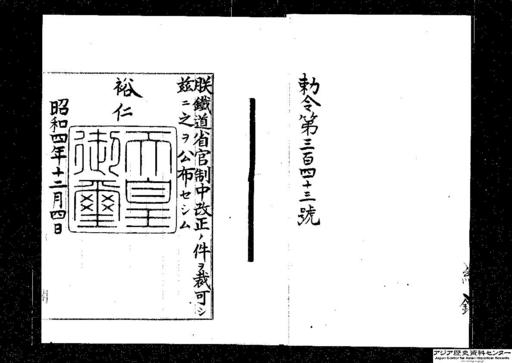 勅令第三百四十三號
朕鐵道省官制中改正ノ件ヲ裁可シ
茲ニ之ヲ公布セシム
裕仁
天皇御璽
昭和四年十二月四日
アジア歴史資料センター
Japan Center for Asian Historical Records